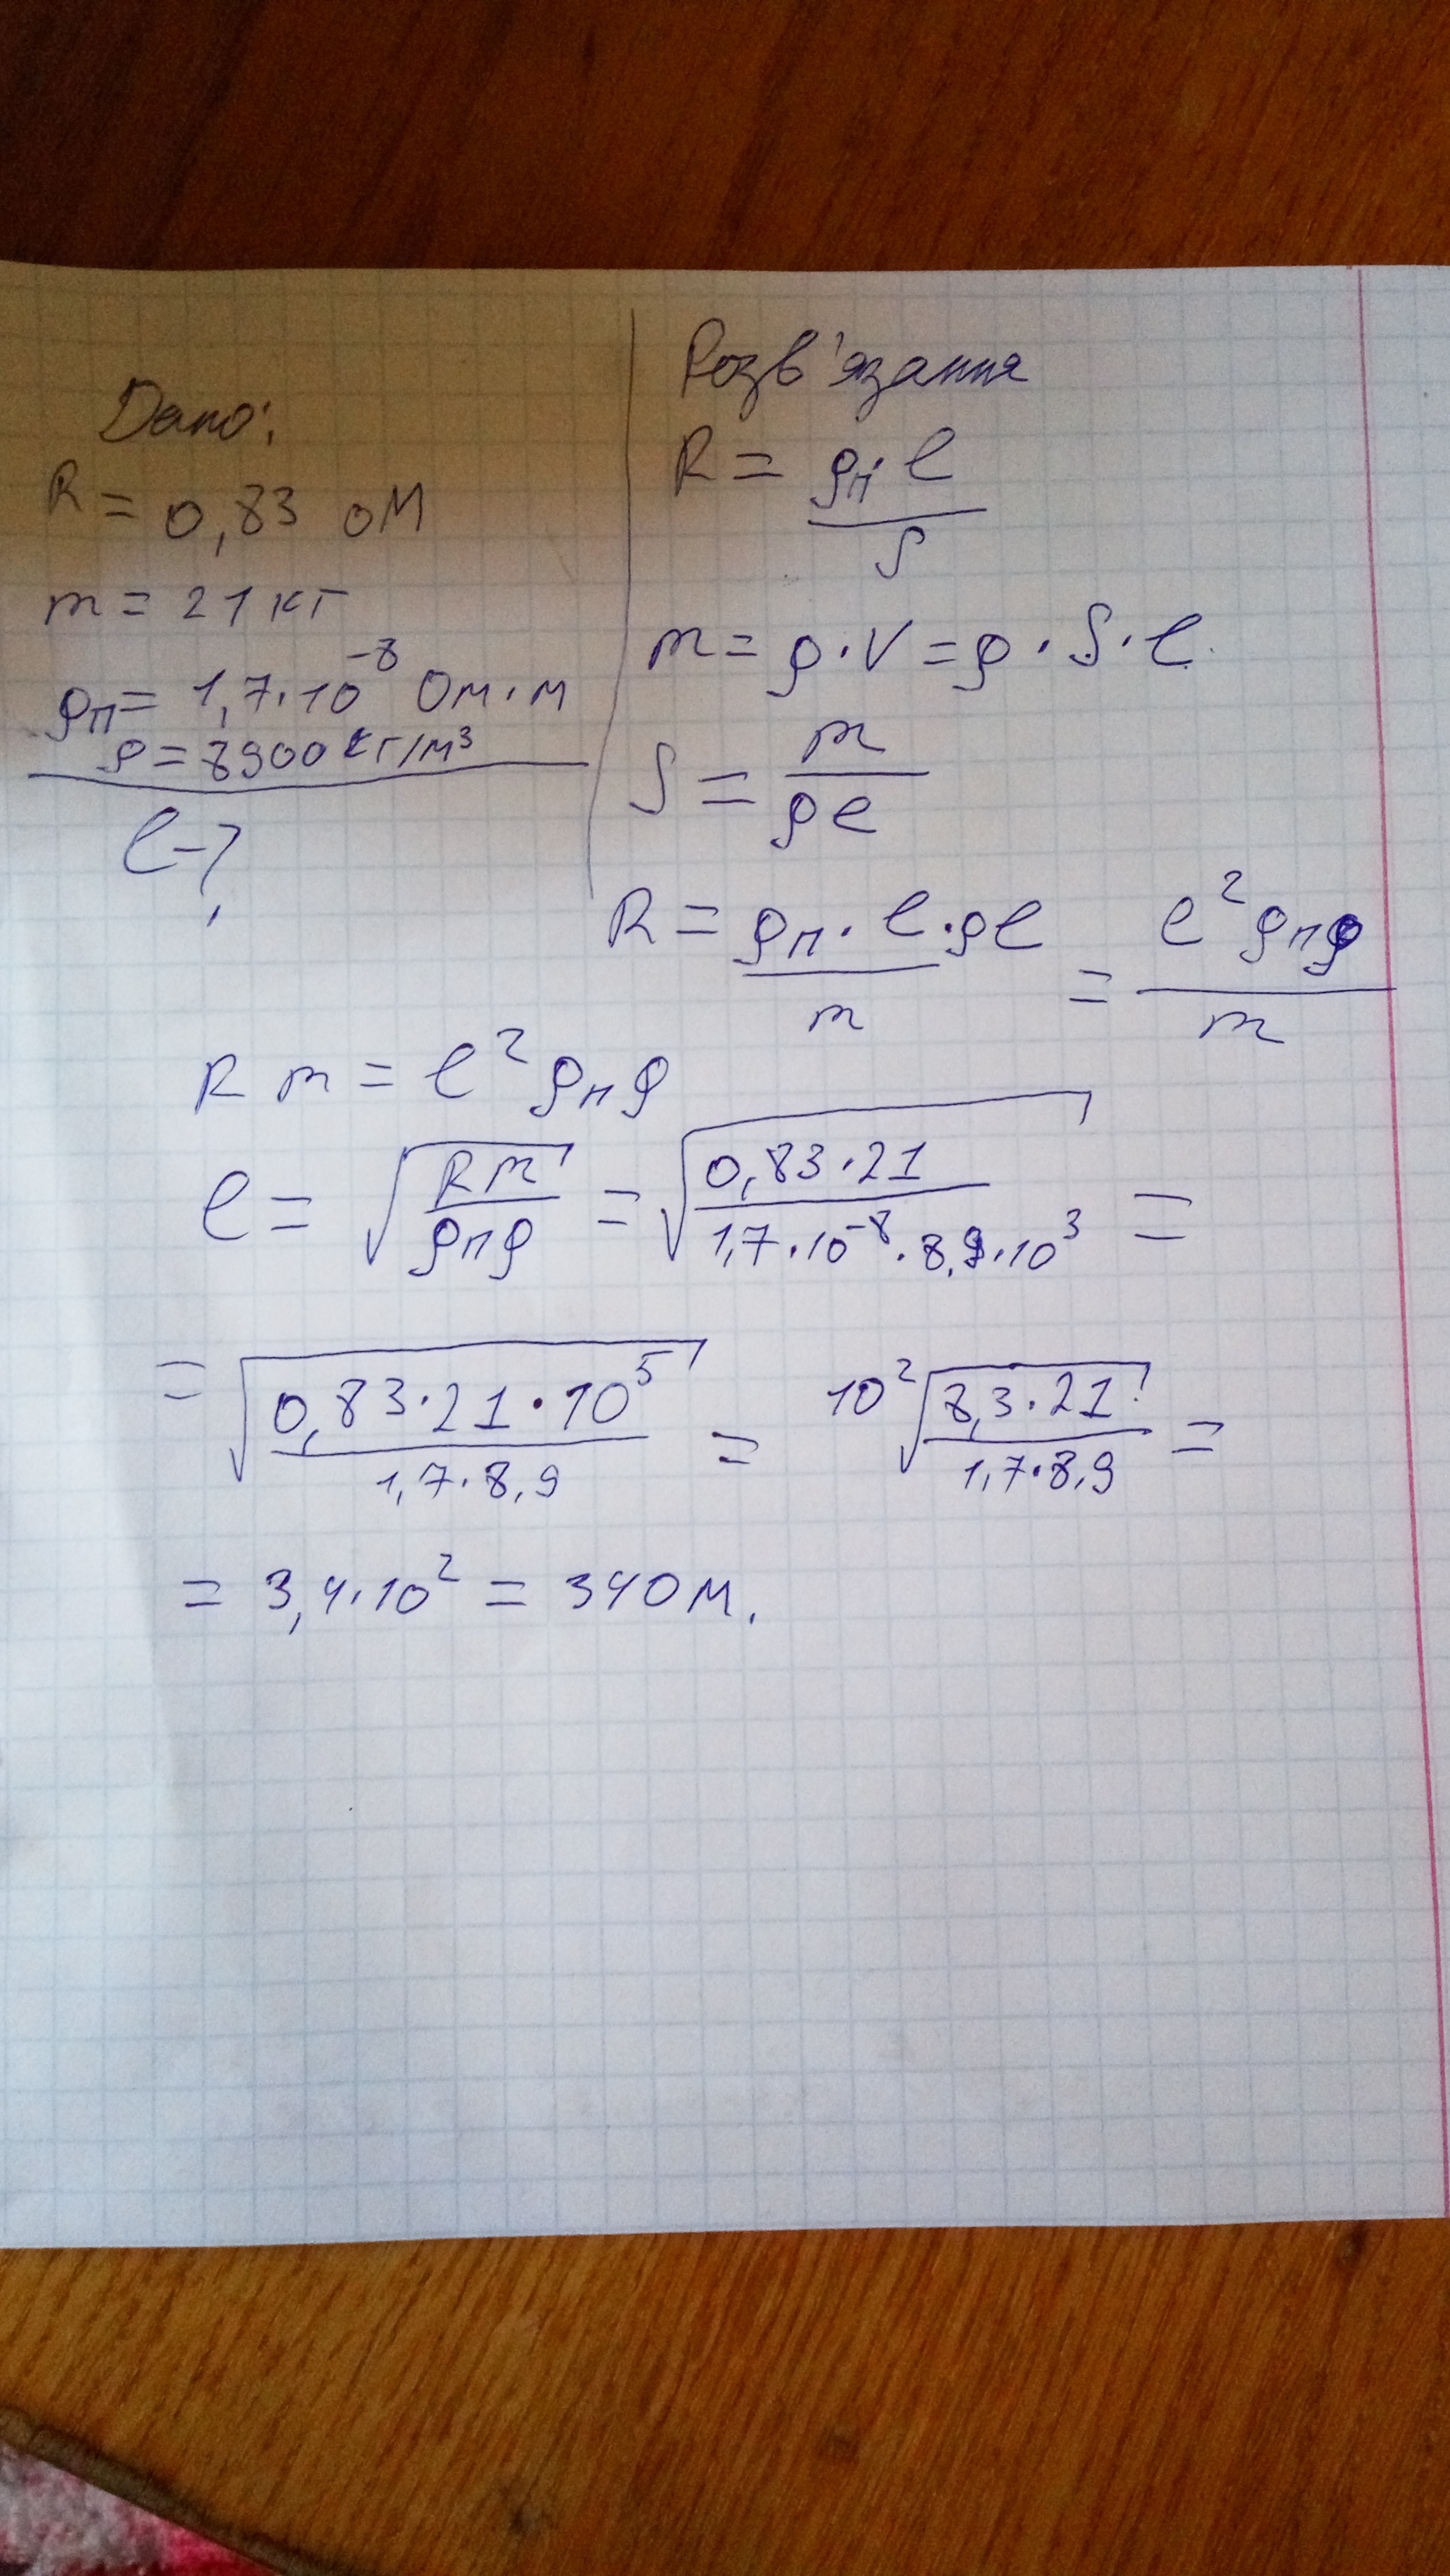 Дано:
R = 0,83 оМ
m = 21 кг
ρп = 1,7·10⁻⁸ Ом·м
ρ = 8900 кг/м³
l-?
Розв'язання
R = ρп·l / S
m = ρ·V = ρ·S·l.
S = m / ρl
R = ρп·l·ρl / m = l²ρпρ / m
Rm = l²ρпρ
l = √(Rm / ρпρ) = √(0,83·21 / 1,7·10⁻⁸·8,9·10³) =
= √(0,83·21·10⁵ / 1,7·8,9) = 10²√(8,3·21 / 1,7·8,9) =
= 3,4·10² = 340м.